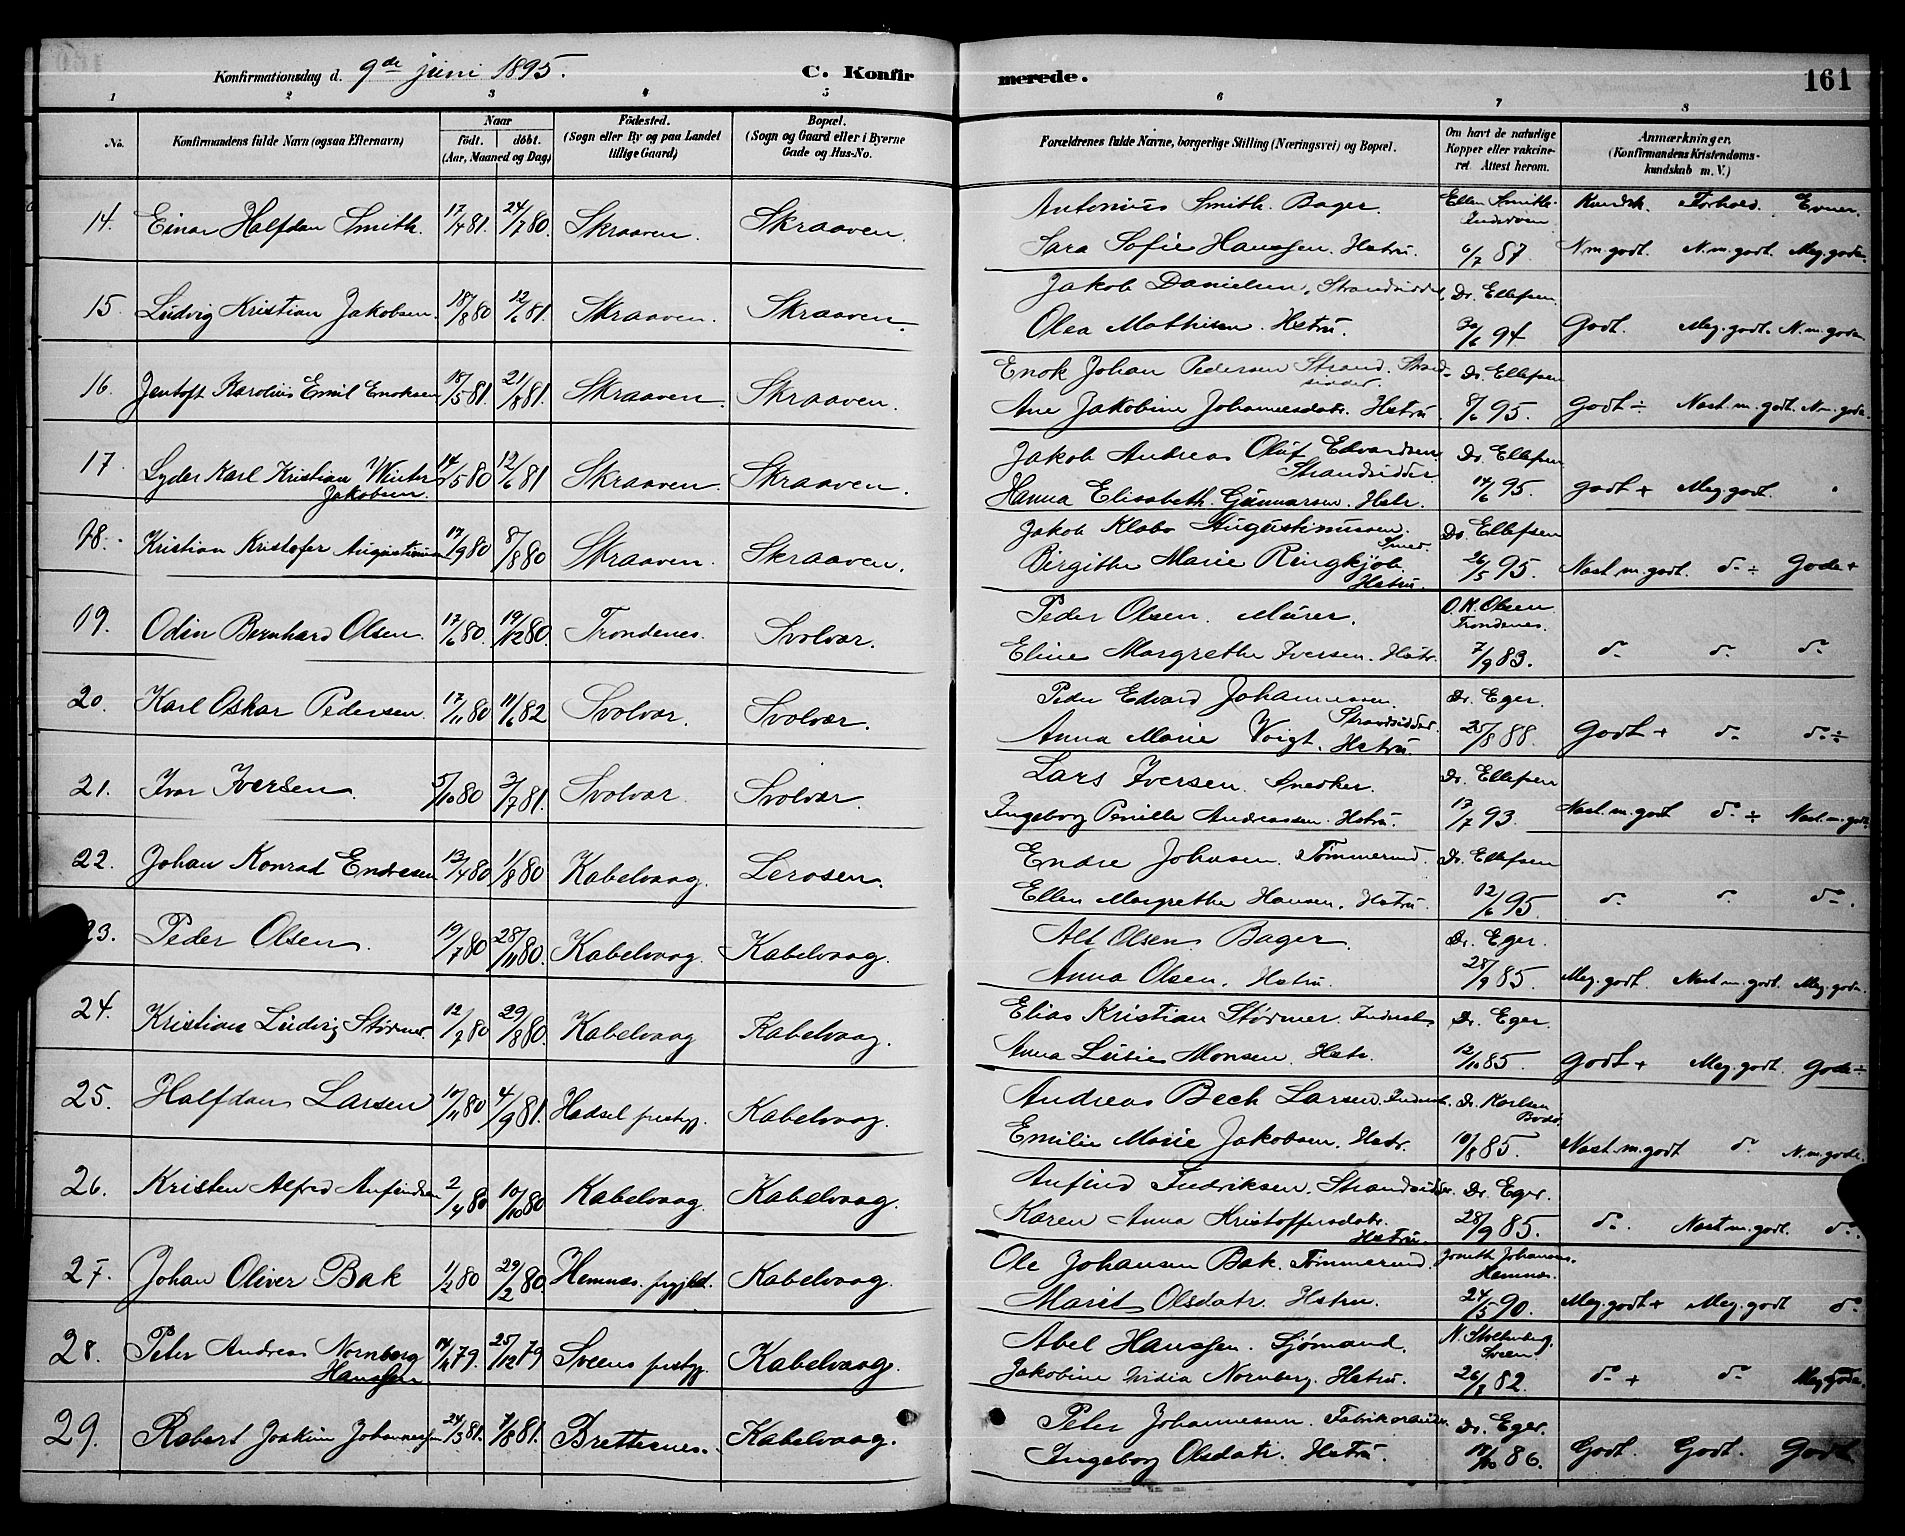 Konfirmationsdag d. 9de juni 1895. C. Konfirmerede. 161
1 2 3 4 5 6 7 8
No. Konfirmandens fulde Navn (ogsaa Efternavn) Naar födt. döbt. (Aar, Maaned og Dag) Födested. (Sogn eller By og paa Landet tillige Gaard) Bopæl. (Sogn og Gaard eller i Byerne Gade og Hus-No. Forældrenes fulde Navne, borgerlige Stilling (Næringsvei) og Bopæl. Om havt de naturlige Kopper eller vakcineret. Attest herom. Anmærkninger, (Konfirmandens Kristendomskundskab m. V.)
14. Einar Halfdan Smith. 17/4 81. 24/7 80. Skraaven. Skraaven. Antonius Smith. Bager. Ellen Smith Kundsk. Forhold. Evner.
Sara Sofie Hanssen. Hstru. 6/7 87 N.m.godt. N.m.godt. Meg.gode.
15. Ludvig Kristian Jakobsen. 18/8 80 12/6 81. Skraaven. Skraaven. Jakob Danielsen, Strandsidder, Dr. Ellefsen
Olea Mathisen. Hstru. 30/6 94 Godt. Meg.godt. N.m.gode
16. Jentoft Karolius Emil Enoksen 18/5 81. 21/8 81. Skraaven. Skraaven. Enok Johan Pedersen Strand. Strandsidder. Dr. Ellefsen
Ane Jakobine Johannesdatr. Hstru 8/6 95. Godt ÷ Nast.m.godt. N.m.gode.
17. Lyder Karl Kristian Winter Jakobsen. 14/5 80 12/6 81 Skraaven. Skraaven. Jakob Andreas Oluf Edvardsen Strandsidder Dr. Ellefsen
Hanna Elisabeth Gunnarsen. Hstr. 14/6 95. godt + Meg.godt.
18. Kristian Kristofer Augustinusen 17/9 80 8/8 80 Skraaven. Skraaven. Jakob Klabo Augustinussen. Smed. Dr. Ellefsen
Birgithe Marie Ringkjöb. Hstru. 26/5 95. Nast.m.godt. do ÷ Gode +
19. Odin Bernhard Olsen. 17/6 80. 19/12 80. Trondenes. Svolvær. Peder Olsen. Murer. O. K. Olsen Trondenes.
Eline Margrethe Iversen. Hstr. 7/9 83. do do do
20. Karl Oskar Pedersen. 17/11 80 11/6 82 Svolvær. Svolvær. Peder Edvard Johannesen. Strandsidder. Dr. Eger.
Anna Marie Voigt. Hstru. 25/8 88. Godt + do do ÷
21. Ivar Iversen. 5/10 80 3/7 81. Svolvær. Svolvær. Lars Iversen Snedker. Dr. Ellefsen
Ingeborg Pernille Andreassen. Hstru. 17/7 93. Nast.m.godt do ÷ Nast.m.gode.
22. Johan Konrad Endresen 13/4 80 1/8 80 Kabelvaag. Lerosen. Endre Johnsen. Tømmermd. Dr. Ellefsen
Ellen Margrethe Hansen. Hstru. 12/6 95. do do do.
23. Peder Olsen. 19/7 80 28/11 80. Kabelvaag. Kabelvaag. Alt Olsen. Bager. Dr. Eger.
Anna Olsen. Hstru. 28/9 85. Meg.godt. Nast.m.godt. Meg.gode.
24. Kristian Ludvig Størmer. 12/7 80 29/8 80. Kabelvaag Kabelvaag. Elias Kristian Størmer. Dr. Eger.
Anna Lusie Monsen. Hstr. 12/10 85. Godt + Meg.godt. Gode ÷
25. Halfdan Larsen 10/11 80 4/9 81. Hadsel prestgj. Kabelvaag. Andreas Bech Larsen. Dr. Karlsen Bodø.
Emilie Marie Jakobsen. Hstr. 10/8 85. Nast.m.godt do N.m.gode.
26. Kristen Alfred Anfindsen 2/4 80 10/10 80 Kabelvaag. Kabelvaag. Anfind Fredriksen. Strandsidder. Dr. Eger.
Karen Anna Kristoffersdatr. Hstru. 28/9 85. do. Nast m.godt. do.
27. Johan Oliver Bak 1/2 80 29/2 80. Hemnæs. prgjld. Kabelvaag. Ole Johansen Bak. Tømmermd. Joneth Johansen. Hemnæs.
Marit Olsdatr. Hstru. 24/5 90. Meg.godt + Meg.godt do
28. Peter Andreas Nornberg Hanssen 14/11 79. 25/12 79 Sveens prestgj. Kabelvaag. Abel Hanssen. Sjømand. N. Stoltenberg. Sveen.
Jakobine Nornberg. Hstru. 26/7 82. do + do Meg.gode.
29. Robert Joakim Johannessen 24/3 81. 7/8 81. Brettesnes. Kabelvaag. Peter Johannessen. Fabrikarbeider Dr. Eger.
Ingeborg Olsdatr. Hstru. 17/10 86. Godt. Godt. Godt.